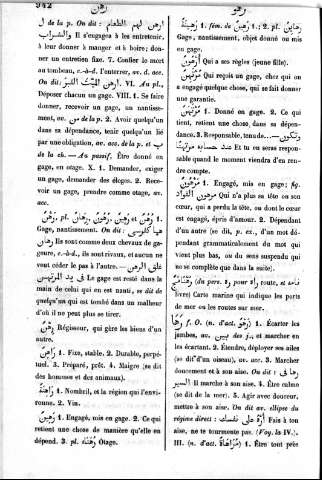 942
رهن
رهو
ل de la p. On dit : ارهن لهم الطعام
والشراب Il s'engagea à les entretenir,
à leur donner à manger et à boire; don-
ner un entretien fixe. 7. Confier le mort
au tombeau, c.-à-d. l'enterrer, av. d. acc.
On dit : ارهن الميت القبر. VI. Au pl.,
Déposer chacun un gage. VIII. 1. Se faire
donner, recevoir un gage, un nantisse-
ment, av. من de la p. 2. Avoir quelqu'un
dans sa dépendance, tenir quelqu'un lié
par une obligation, av. acc. de la p. et ب
de la ch. — Au passif, Être donné en
gage, en otage. X. 1. Demander, exiger
un gage, demander des otages. 2. Rece-
voir un gage, prendre comme otage, av.
acc.
رهن pl. رهان, رهون, رهن et رهين
Gage, nantissement. On dit : هما كفرسى
رهان Ils sont comme deux chevaux de ga-
geure, c.-à-d., ils sont rivaux, et aucun ne
veut céder le pas à l'autre. — غلق الرهن
فى يد المرتهن Le gage est resté dans la
main de celui qui en est nanti, se dit de
quelqu'un qui est tombé dans un malheur
d'où il ne peut plus se tirer.
رهن Régisseur, qui gère les biens d'un
autre.
راهن 1. Fixe, stable. 2. Durable, perpé-
tuel. 3. Préparé, prêt. 4. Maigre (se dit
des hommes et des animaux).
راهنة 1. Nombril, et la région qui l'envi-
ronne. 2. Vin.
رهين 1. Engagé, mis en gage. 2. Ce qui
retient une chose de manière qu'elle en
dépend. 3. pl. رهناء Otage.
رهينة 1. fém. de رهين; 2. pl. رهائن
Gage, nantissement, objet donné ou mis
en gage.
Qui a ses règles (jeune fille).
مرتهن Qui reçoit un gage, chez qui on
a engagé quelque chose, qui se fait donner
une garantie.
مرتهن 1. Donné en gage. 2. Ce qui
tient, retient une chose, dans sa dépen-
dance. 3. Responsable, tenu de... — وتكون
عند حسابه مرتهنا Et tu en seras respon-
sable quand le moment viendra d'en ren-
dre compte.
مرهون 1. Engagé, mis en gage; fig.
مرهون الفؤاد Qui n'a plus en tête ou son
cœur, qui a perdu la tête, ou dont le cœur
est engagé, épris d'amour. 2. Dépendant
d'un autre (se dit, p. ex., d'un mot dé-
pendant grammaticalement du mot qui
vient plus bas, ou du sens suspendu qui
ne se complète que dans la suite).
رهنامج (du pers. راه route, et نامه
livre) Carte marine qui indique les ports
de mer ou les routes sur mer.
رها f. O. (n. d'act. رهو) 1. Écarter les
jambes, av. بين des j., et marcher en
les écartant. 2. Étendre, déployer ses ailes
(se dit d'un oiseau), av. acc. 3. Marcher
doucement et à son aise. On dit : رها فى
السير Il marche à son aise. 4. Être calme
(se dit de la mer). 5. Agir avec douceur,
mettre à son aise. On dit av. ellipse du
régime direct : اره على نفسك Fais à ton
aise, ne te tourmente pas. (Voy. la IV.).
III. (n. d'act. مراهاة) 1. Être tout près